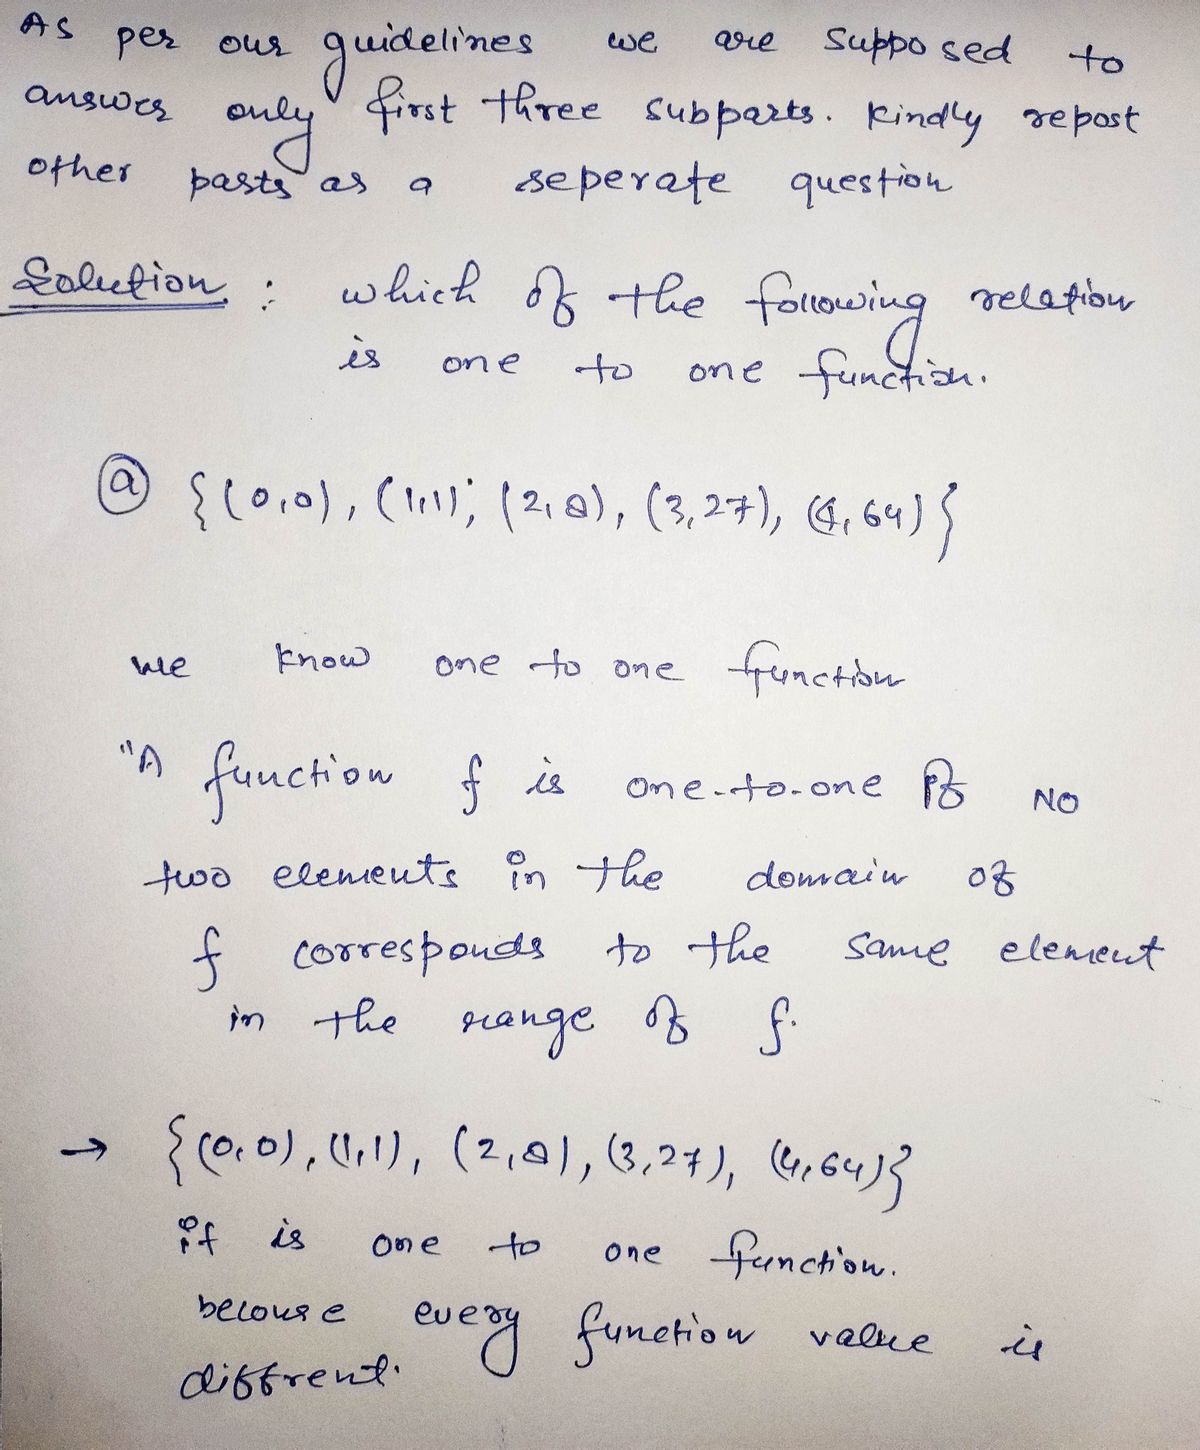 As per our guidelines we are supposed to
answer only first three subparts. Kindly repost
other parts as a seperate question
Solution : which of the following relation
is one to one function.
(a) {(0,0), (1,1); (2,8), (3,27), (4,64)}
we know one to one function
"A function f is one-to-one if NO
two elements in the domain of
f corresponds to the same element
in the range of f.
→ {(0,0), (1,1), (2,8), (3,27), (4,64)}
it is one to one function.
becouse every function value is
diffrent.